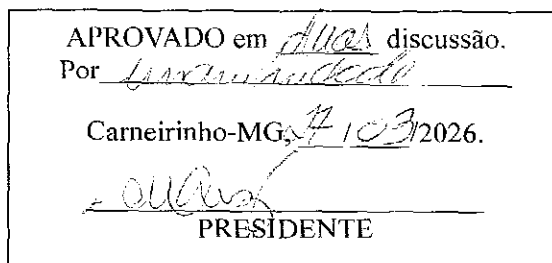 APROVADO em duas discussão.
Por unanimidade
Carneirinho-MG, /03/2026.
PRESIDENTE